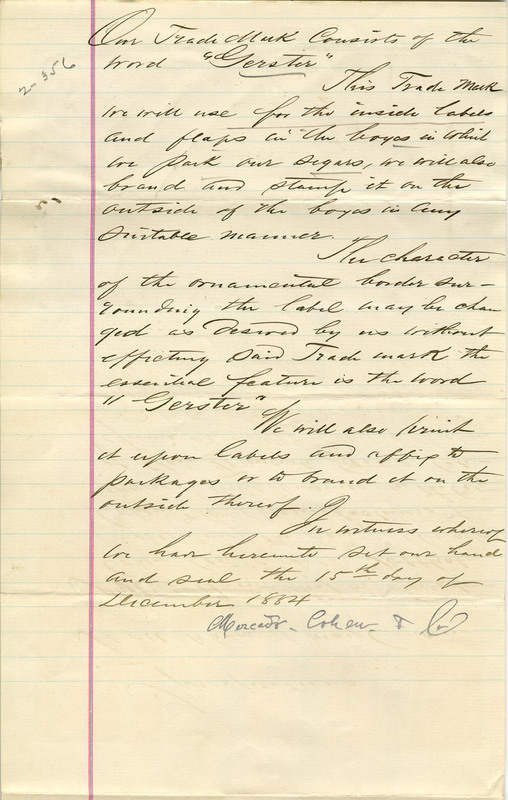 2-356
Our Trade Mark Consists of the
word "Gerster"
This Trade Mark
we will use for the inside labels
and flaps in the boxes in which
we pack our segars, we will also
brand and stamp it on the
outside of the boxes in any
suitable manner.
The character
of the ornamental border sur-
rounding the label may be chan
ged as desired by us without
effecting said Trade mark the
essential feature is the word
"Gerster"
We will also print
it upon labels and affix to
packages or to brand it on the
outside thereof.
In witness whereof
we have hereunto set our hand
and seal the 15th day of
December 1884
Mercado, Cohen & Co